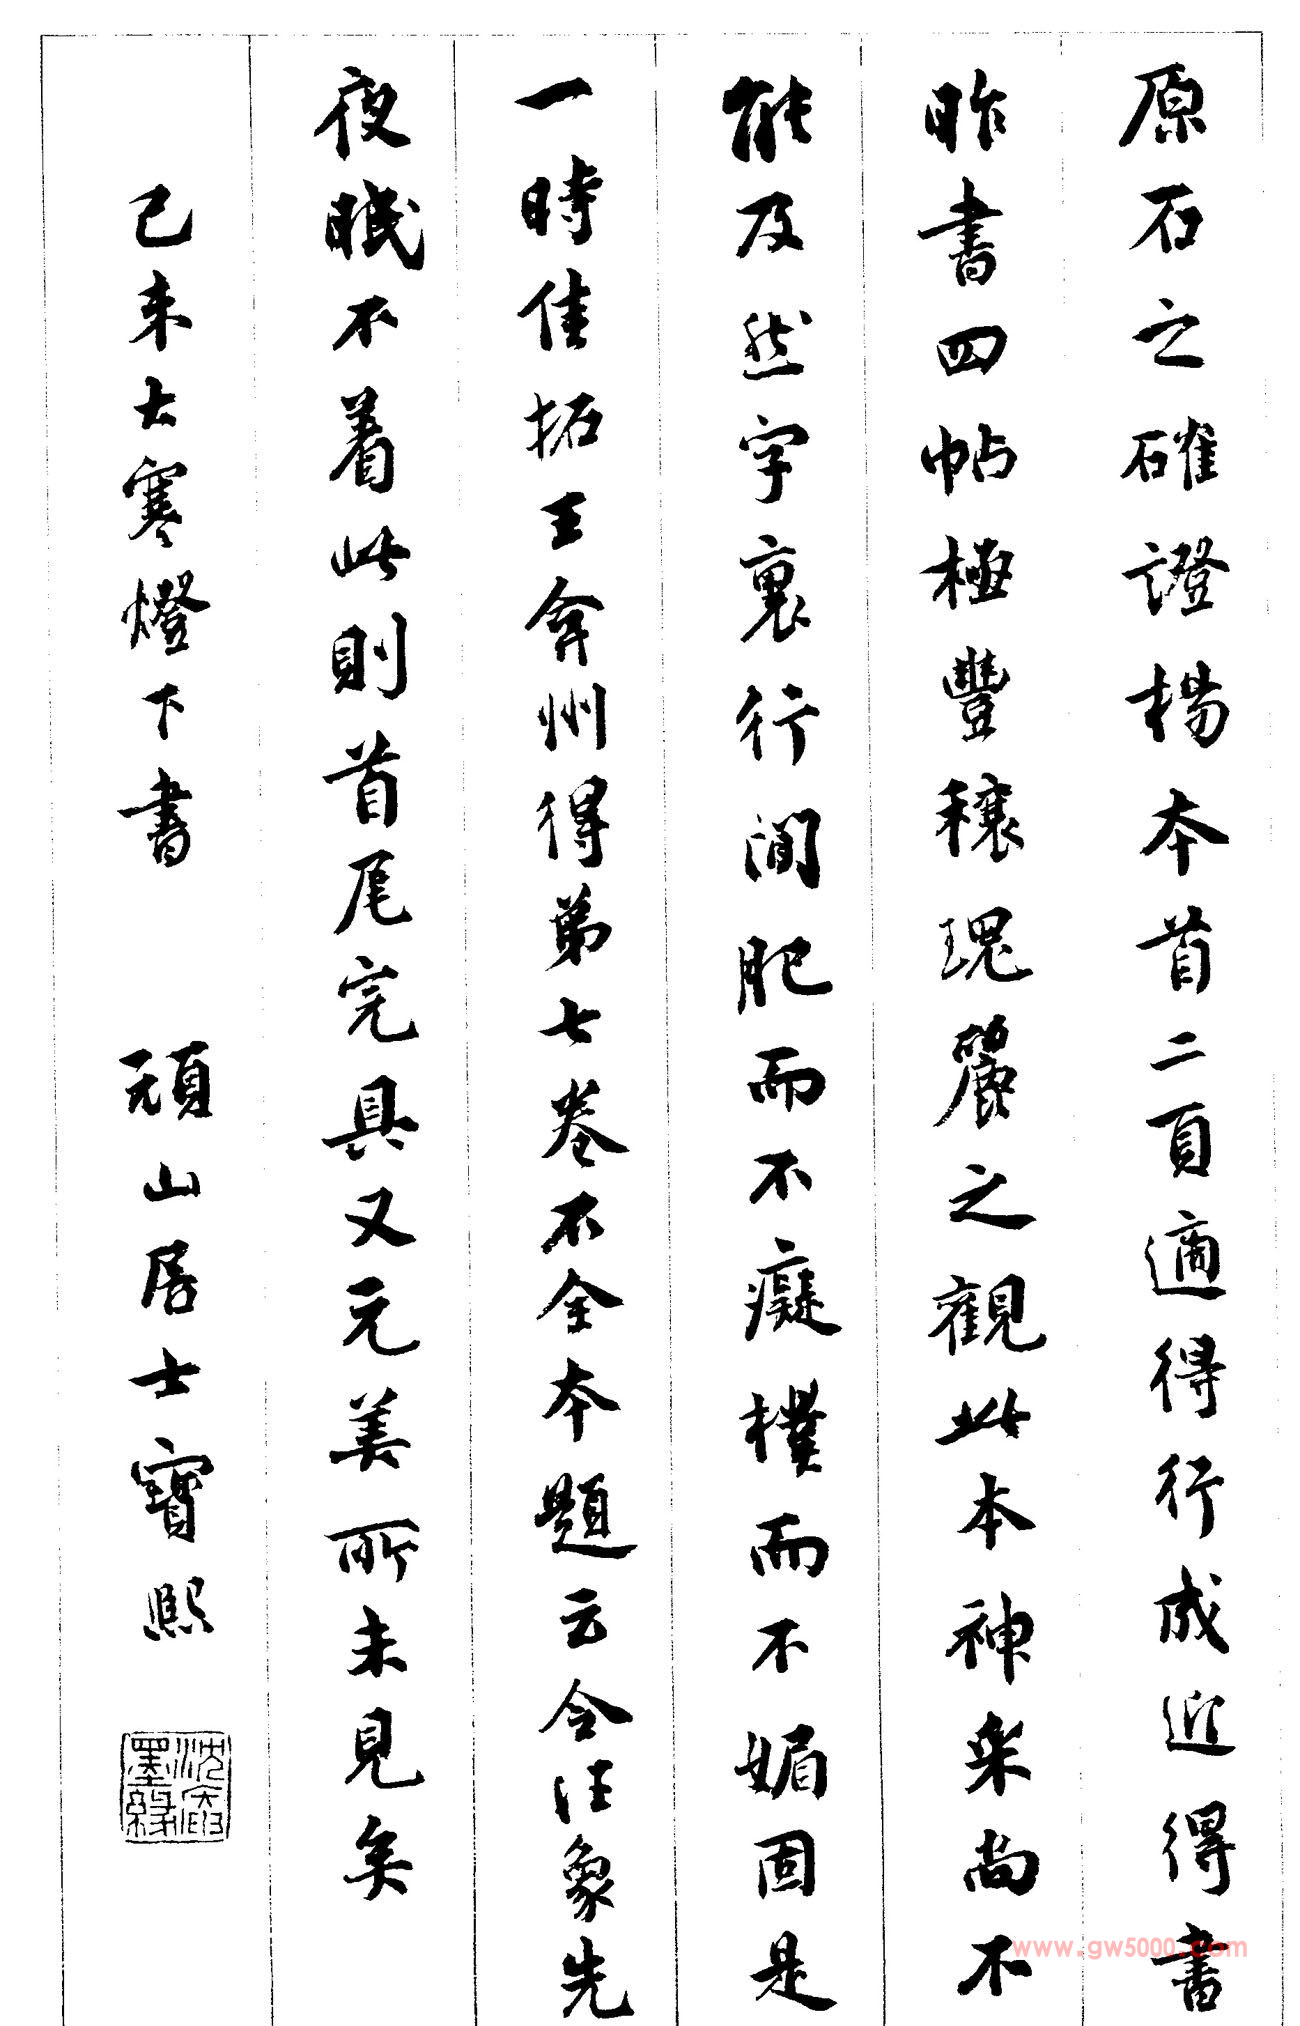 原石之確證楊本首二頁適得行成近得書
昨書四帖極豐穰瑰麗之觀此本神采尚不
能及然字裏行間肥而不癡樸而不媚固是
一時佳拓王弇州得第七卷不全本題云令汪象先
夜眠不着此則首尾完具又元美所未見矣
己未大寒燈下書 頑山居士寶熙
墨緣
www.gw5000.com